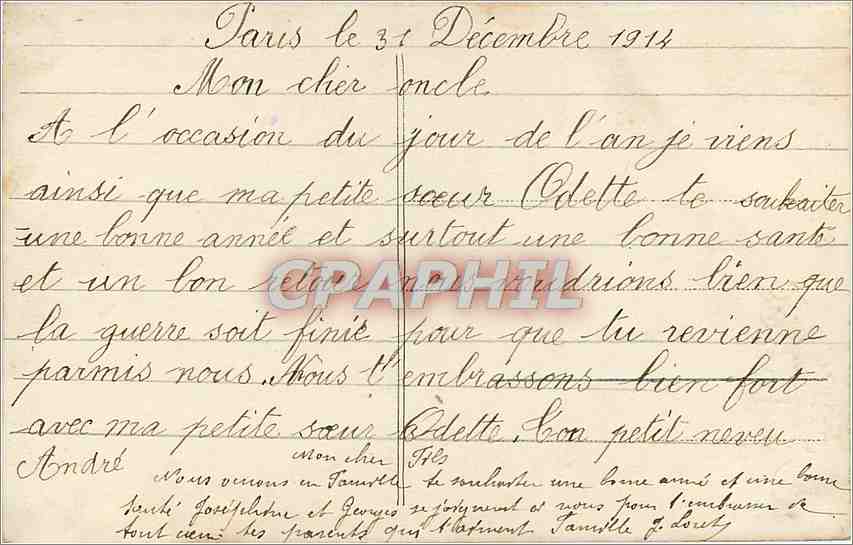 Paris le 31 Décembre 1914
Mon cher oncle
A l'occasion du jour de l'an je viens
ainsi que ma petite sœur Odette te souhaiter
une bonne année et surtout une bonne santé
et un bon retour nous voudrions bien que
la guerre soit finie pour que tu revienne
parmis nous. Nous t'embrassons bien fort
avec ma petite sœur Odette. Ton petit neveu
André
Mon cher Fils
Nous venons en Famille te souhaiter une bonne anné et une bonne
santé Joséphine et Georges se joignent a nous pour t'embrasser de
tout cœur tes parents qui t'aiment Famille J.
CPAPHIL